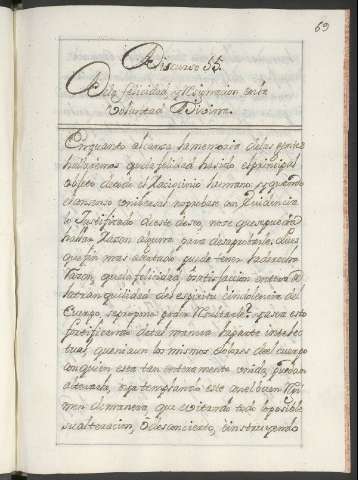 63
Discurso 55.
Dela felicidad, y Resignacion en la
Voluntad Divina.
En quanto alcanza la memoria delas gentes
hallaremos que la felicidad ha sido el principal
objeto de todo el Raciocinio humano, y quando
el consenso universal no probase con evidencia
lo Justificado de este deseo, no se que se pueda
hallar Razon alguna para desaprobarlo. Pues
que fin mas adequado puede tener la derecha
Razon, que la felicidad, ò satisfacion entera de
la tranquilidad del espiritu è indolencia del
Cuerpo, se propone por
fortificando de tal manera la parte intelec
tual, que ni aun los mismos dolores del cuerpo
con quien està tan enteramente unida, puedan
alterarla, ò ya templando este con el buen Regi
men de manera, que evitando todo lo posible
su alteracion, ò desconcierto, è instruyendo